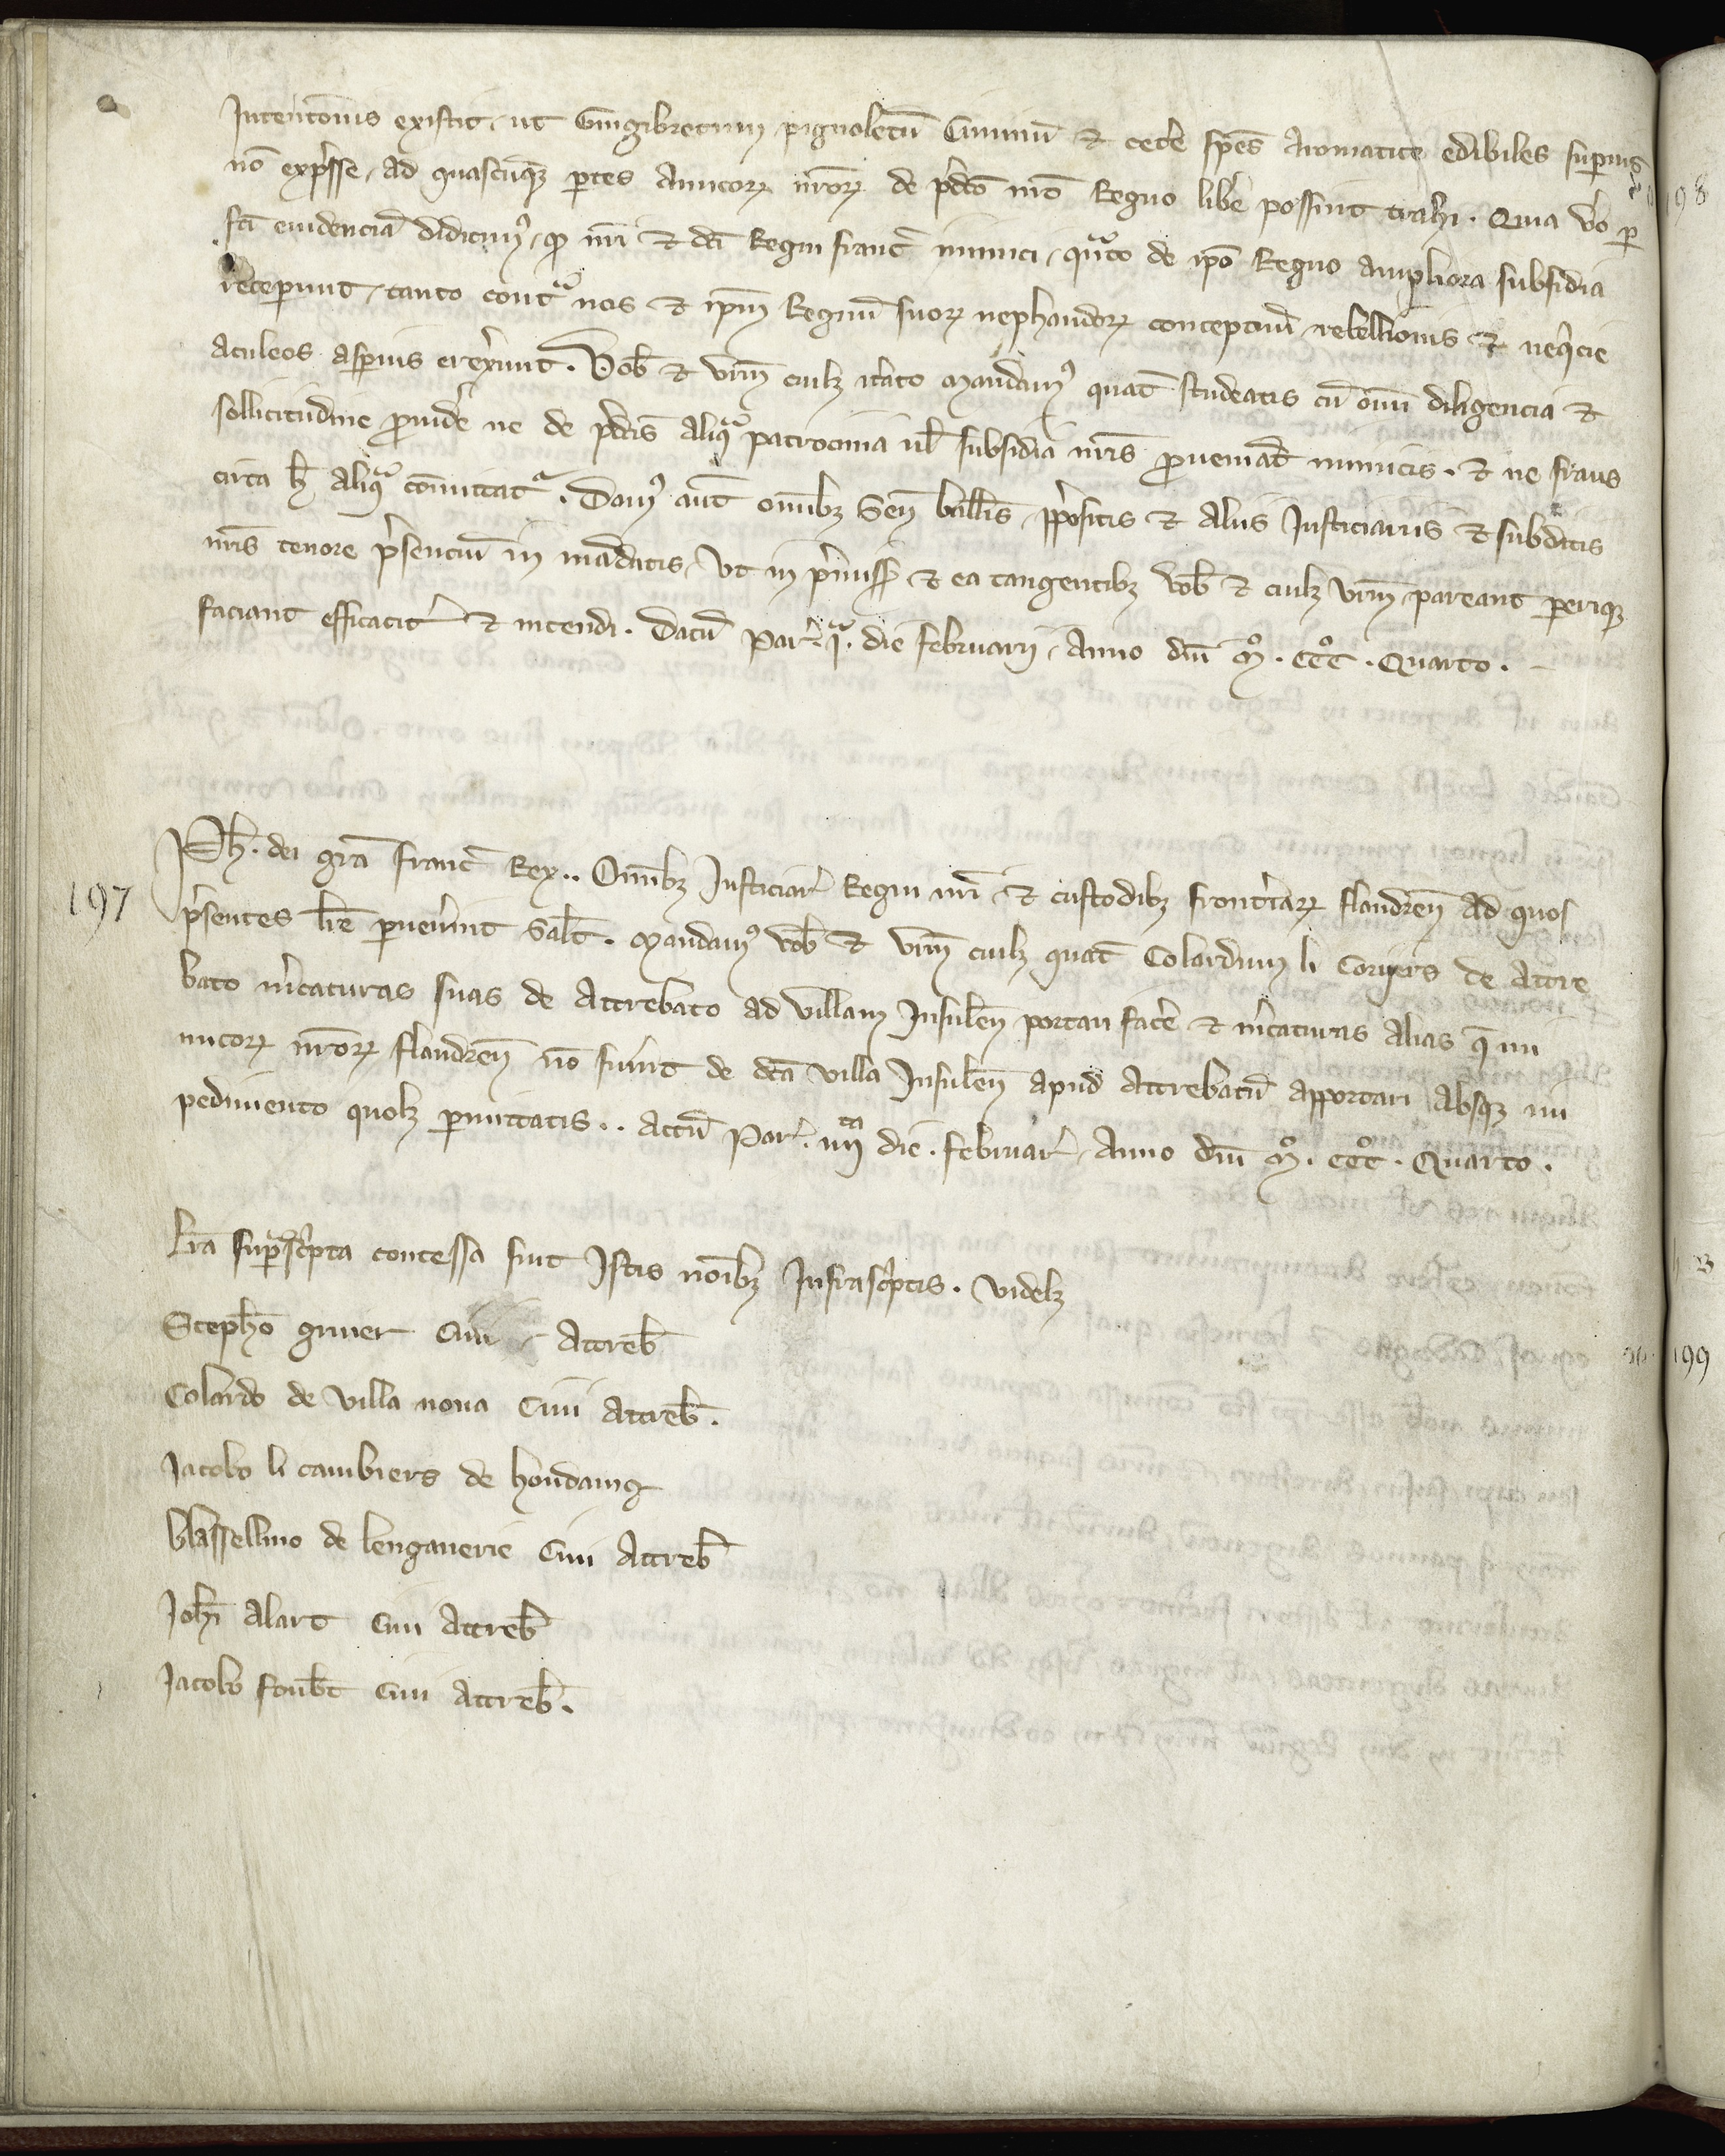 Intentōnis existit, ut Gingibretum pignoletū Ciminū et cet̄e sp̄es Aromatice edibiles sup̄ius
nō exp̄sse, ad quascūqꝫ ptes Amicoꝝ nr̄oꝝ de p̄dc̄o nr̄o Regno lib̄e possint trahi. Quia v̄o p
fc̄i euidenciā didicimꝰ, qđ nr̄i et dc̄i Regni franc̄ inimici, qnͣto de ip̄o Regno ampliora subsidia
receperunt, tanto contͣ nos et ip̄m Regnū suoꝝ nephandoꝝ conceptuū rebellionis et neqͥcie
aculeos asp̄ius erex̄unt. Vob̄ et vr̄m cuilꝫ it̄ato Mandamꝰ quat̄ studeatis cū om̄i diligencia et
sollicitudine ꝓuid̄e ne de p̄dc̄is aliqͣ patrocinia ul̄ subsidia nr̄is ꝓueniāt inimicis. et ne fraus
circa h̄ aliqͣ cōmittatͣ. Damꝰ aūt om̄ibꝫ Sen̄ balliīs, p̄positis et aliis Justiciariis et subditis
nr̄is tenore p̄senciū in mādatis, vt in p̄miss̄ et ea tangentibꝫ vob̄ et cuilꝫ vr̄m, pareant periqꝫ
faciant efficacit̄ et intendi. Datū Par̄. iͣ. die februarij, Anno dn̄i mͦ. cccͦ. Quarto.
Ph̄. dei gr̄a franc̄ Rex.. Om̄ibꝫ Justiciar̄ Regni nr̄i et custodibꝫ front̄iaꝝ flandren̄ ad quos
197
p̄sentes lr̄e peruen̄int Salt̄. Mandamꝰ vob̄ et vr̄m cuilꝫ quat̄ Colardum li Coriiers de Attre
bato m̄caturas suas de Attrebato ad villam Insulen̄ portari fac̄e et m̄caturas alias q̄ ini
micoꝝ nr̄oꝝ flandren̄ nō fu̅int de dc̄a villa Insulen̄ apud Attrebatū apportari absqꝫ im
pedimento quolꝫ p̄mittatis.. Actū Par̄. iiijta die. februar̄, Anno dn̄i mͦ. cccͦ. Quarto.
Lr̄a supͣscͥpta concessa fuit Istis noīibꝫ Infrascͥptis. videlꝫ
Steph̄o griuer Ciui Attreb̄
Colardo de Villa noua Ciui Attreb̄.
Jacobo li cambiers de houdaing
Wassellino de lenganerie Ciui Attreb̄
Joh̄i Alart Ciui Attreb̄
Jacobo foub̄t Ciui Attreb̄.
198
199